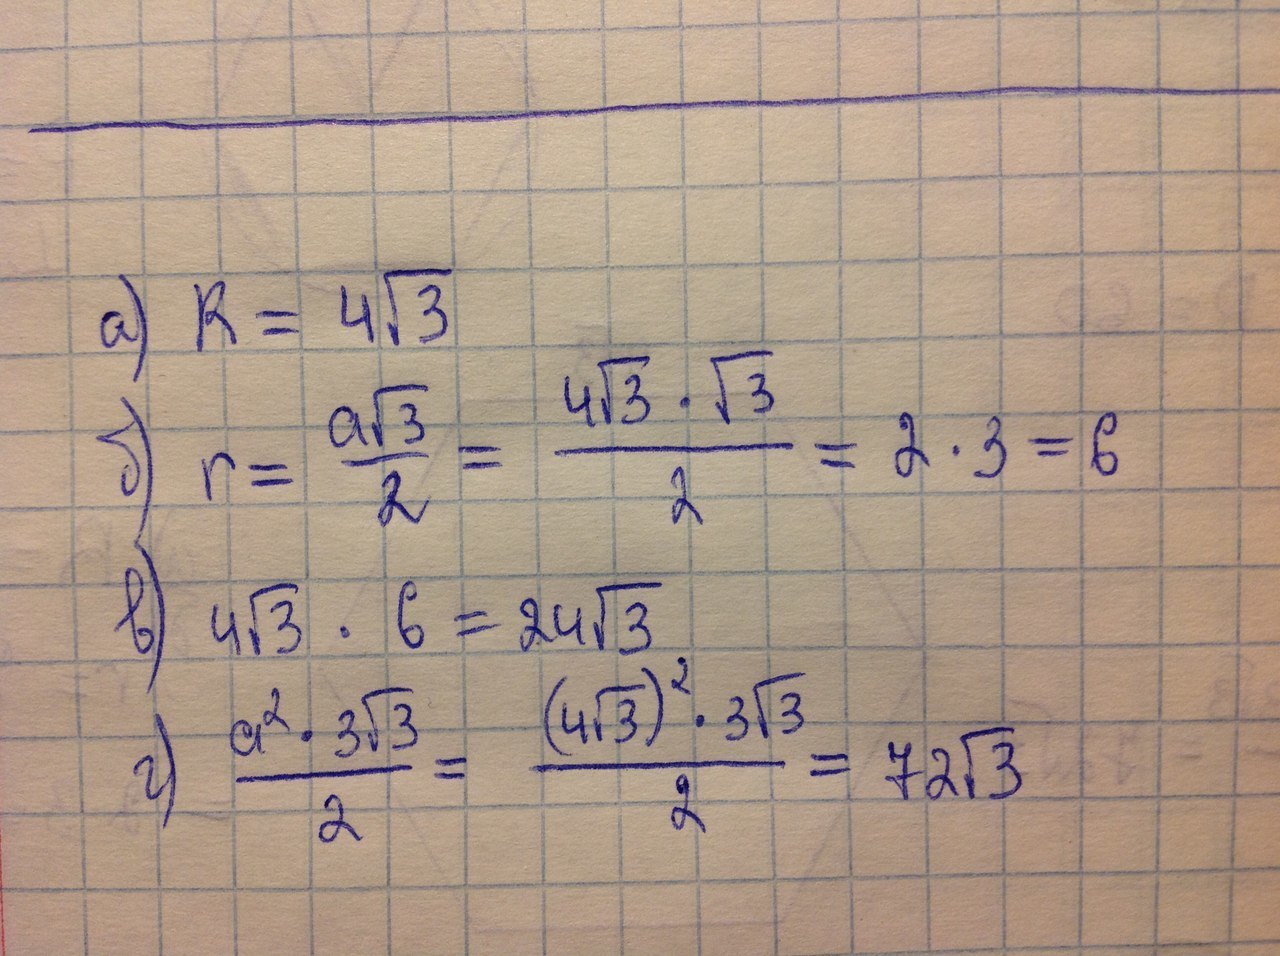 а) R = 4√3
б) r = a√3/2 = 4√3 · √3/2 = 2 · 3 = 6
в) 4√3 · 6 = 24√3
г) a² · 3√3/2 = (4√3)² · 3√3/2 = 72√3